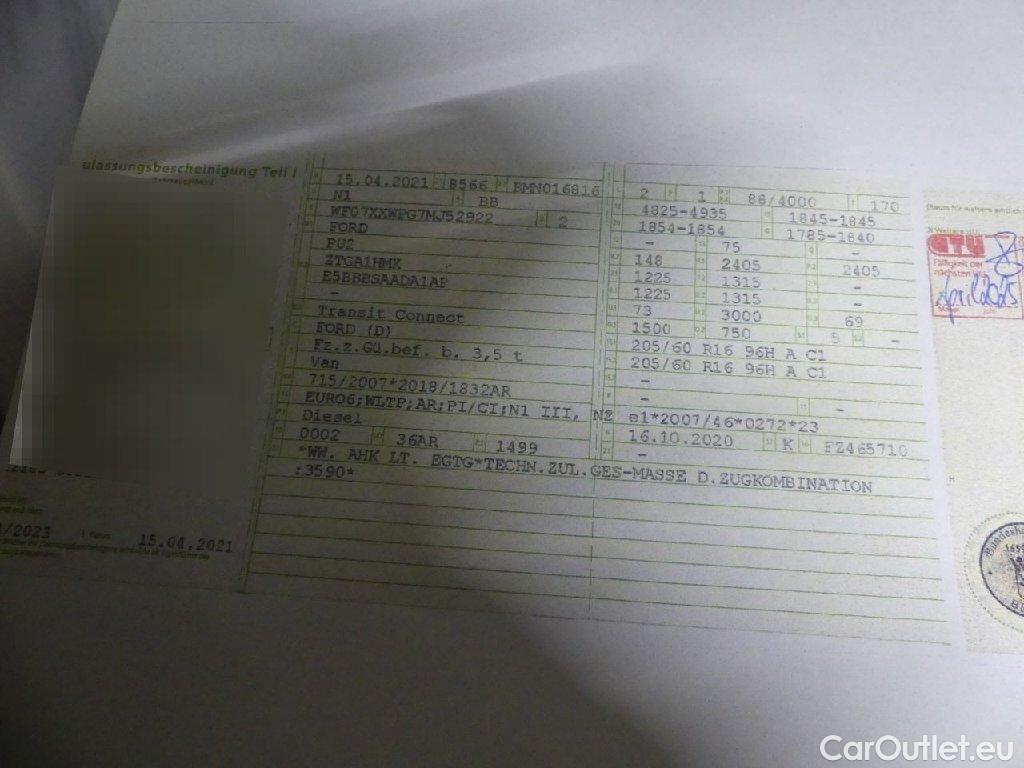 ulassungsbescheinigung Teil I
15.04.2021 8566 BMN016816
N1 BB
WF07XXWPG7MJ52922 2
FORD
PU2
ZTGA1HMX
E5BBBSAADA1AP
-
Transit Connect
FORD (D)
Fz.z.Gü.bef. b. 3,5 t
Van
715/2007*2018/1832AR
EURO6;WLTP;AR;PI/CI;N1 III, N2
Diesel
0002 36AR 1499
*WW. AHK LT. EGTG*TECHN.ZUL.GES-MASSE D.ZUGKOMBINATION
:3590*
2 1 88/4000 170
4825-4935 1845-1845
1854-1854 1785-1840
- 75 -
148 2405 2405
1225 1315 -
1225 1315 -
73 3000 69
1500 750 5 -
205/60 R16 96H A C1
205/60 R16 96H A C1
-
- -
e1*2007/46*0272*23
16.10.2020 K FZ465710
-
/2023 15.04.2021
GTÜ
Fälligkeit der
nächsten HU
April 2025
CarOutlet.eu